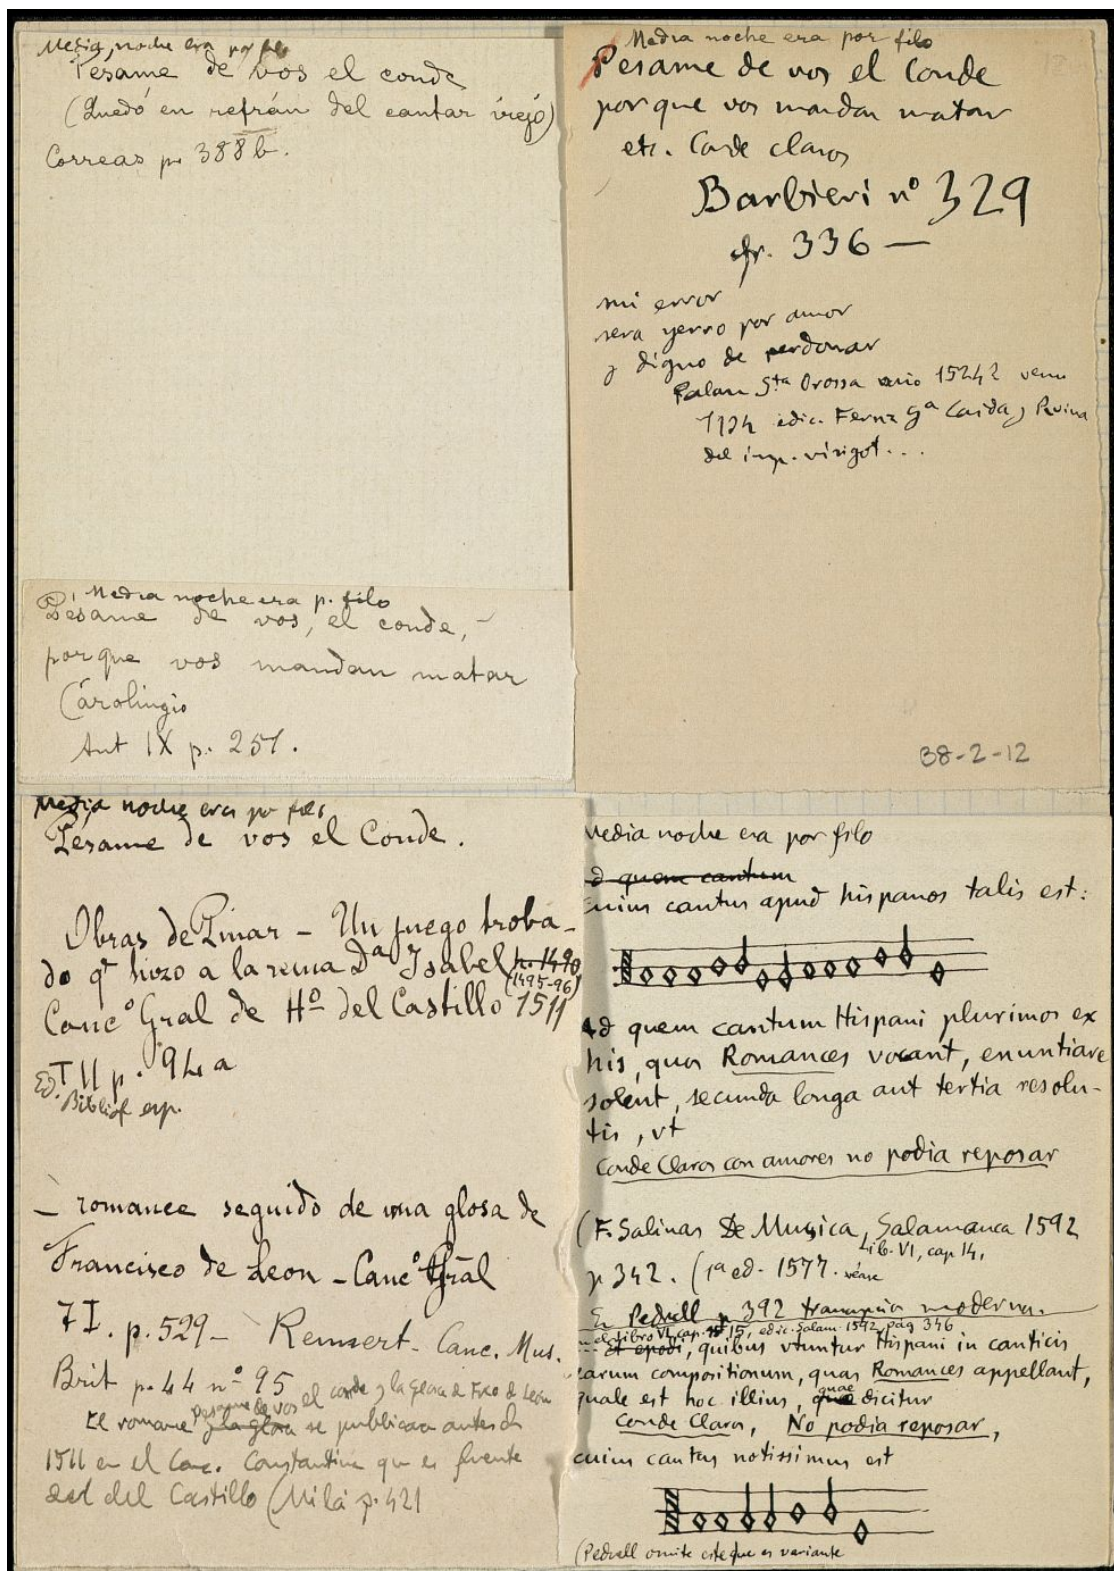 Media noche era por filo
Pésame de vos el conde
(Quedó en refrán del cantar viejo)
Correas p. 388b.
Media noche era p. filo
Pésame de vos, el conde,
porque vos mandan matar
Carolingio
Ant IX p. 251.
Media noche era por filo
Pesame de vos el Conde
porque vos mandan matar
etc. Conde claros
Barbieri nº 329
cfr. 336 —
mi error
sera yerro por amor
y digno de perdonar
Palau Sta Orossa año 1524
1124 edic. Fernz Gª Caida y
del imp. visigot...
38-2-12
Media noche era por filo
Pésame de vos el Conde.
Obras de Pinar - Un juego troba-
do qe hizo a la reina Dª Isabel p. 1490
(1495-96)
Cancº Gral de Hº del Castillo 1511
T II p. 94 a
Ed. Bibliof esp.
— romance seguido de una glosa de
Francisco de Leon - Cancº Gral
T I. p. 529 - Rennert. Canc. Mus.
Brit p. 44 nº 95
Pesame de vos el conde y la glosa de Fco de León
El romance y la glosa se publicaron antes de
1511 en el Canc. Constantina que es fuente
del del Castillo (Milá p. 421
Media noche era por filo
ad quem cantum
cuius cantus apud hispanos talis est:
Ad quem cantum Hispani plurimos ex
his, quos Romances vocant, enuntiare
solent, secunda longa aut tertia resolu-
tis, vt
Conde Claros con amores no podia reposar
(F. Salinas De Musica, Salamanca 1592
Lib. VI, cap 14,
p 342. (1ª ed. 1577. véase
En Pedrell p 392 transcripción moderna.
en el libro VI, cap. 15, edic. Salam. 1592, pág 346
... Et epodi, quibus vtuntur Hispani in canticis
earum compositionum, quas Romances appellant,
quale est hoc illius, quae dicitur
Conde Claros, No podia reposar,
cuius cantus notissimus est
(Pedrell omite este que es variante